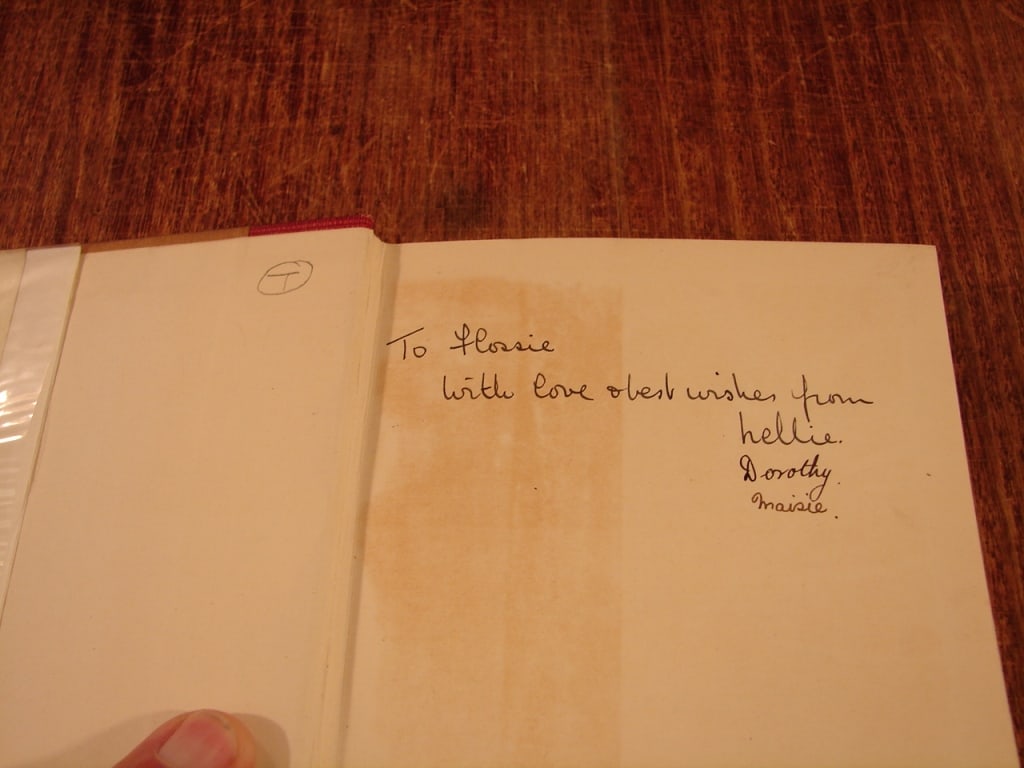 T
To Flossie
With love & best wishes from
Nellie.
Dorothy.
Maisie.